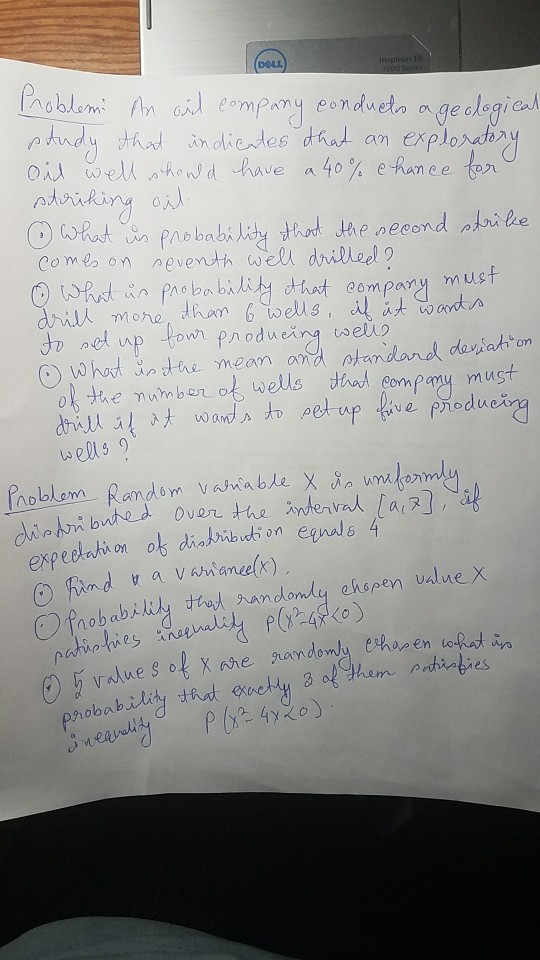 DELL
Inspiron 15
7000 Series
Problem: An oil company conducts a geological
study that indicates that an exploratory
oil well should have a 40% chance for
striking oil.
What is probability that the second strike
comes on seventh well drilled?
What is probability that company must
drill more than 6 wells, if it wants
to set up four producing wells
What is the mean and standard deviation
of the number of wells that company must
drill if it wants to set up five producing
wells?
Problem Random variable X is uniformly
distributed over the interval [a,7], if
expectation of distribution equals 4
Find a variance(x).
Probability that randomly chosen value X
satisfies inequality P(x²-4x<0)
5 values of x are randomly chosen what is
probability that exactly 3 of them satisfies
inequality P(x²-4x<0).